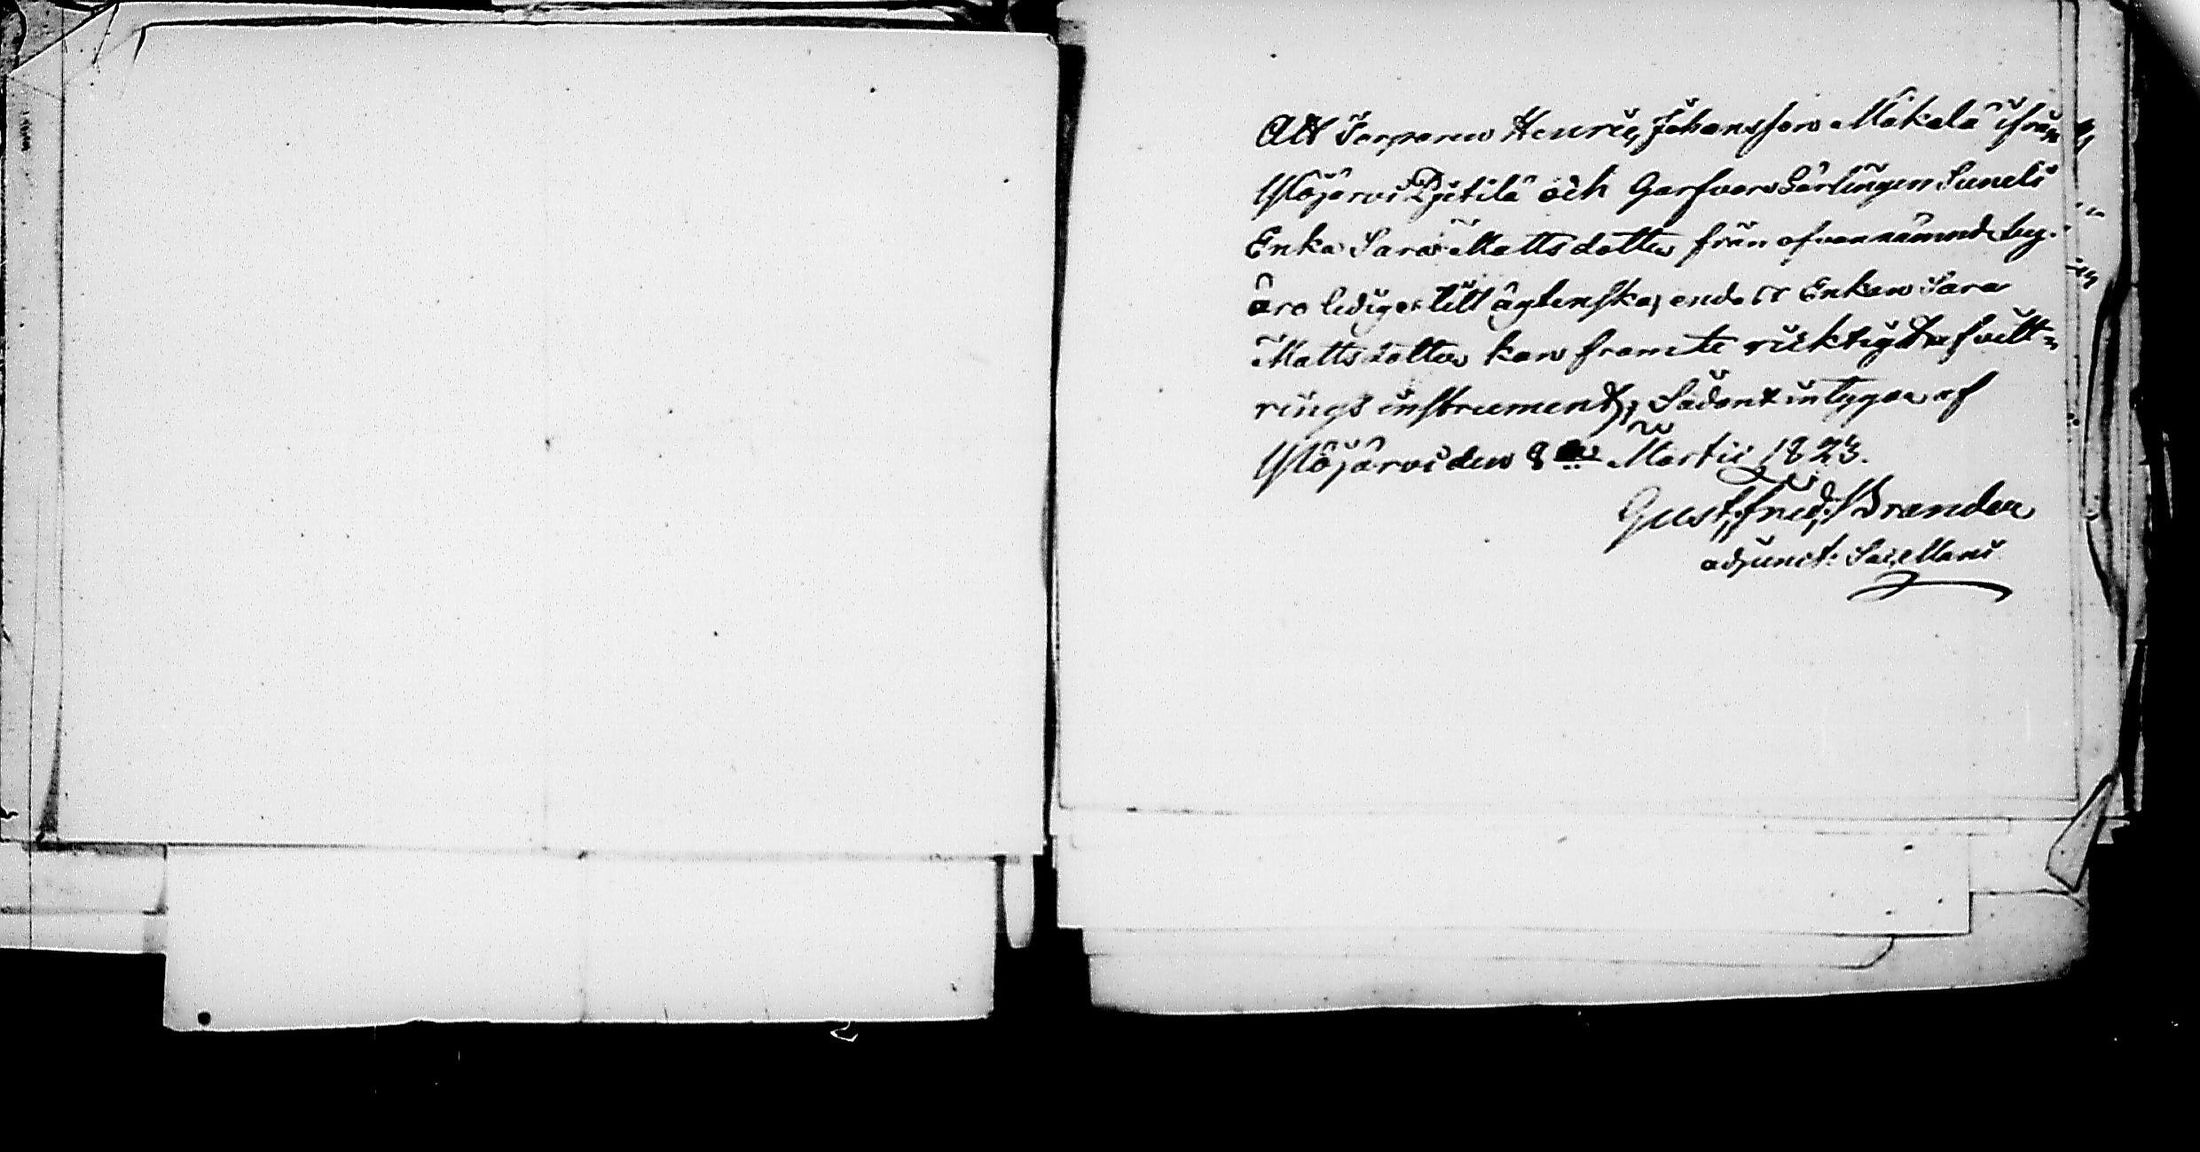 Att Torparen Henric Johansson Mäkelä ifrån
Ylöjärvi Pjetilä och Garfvare Lärlingen Sunels
Enka Sara Matts dotter från ofvannämnde by
äro lediga till äglenskap, endast Enkan Sara
Matts dotter kan framte ricktigt afvitt=
rings instrument, Sådant intygar af
Ylöjärvi den 8 Martii 1823.
Gust. Fried. Brander
adjunct. Sacellani